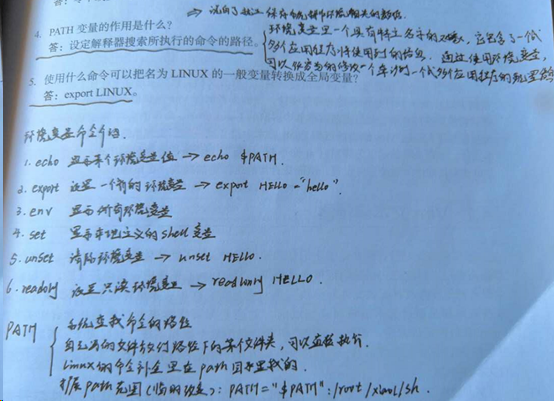 4. PATH 变量的作用是什么?
答:设定解释器搜索所执行的命令的路径。
环境变量是一个具有特定名字的对象,它包含了一个或
多个应用程序将使用到的信息。通过使用环境变量,
5. 使用什么命令可以把名为 LINUX 的一般变量转换成全局变量?
答:export LINUX。
环境变量命令介绍
1. echo 显示某个环境变量值 → echo $PATH.
2. export 设置一个新的环境变量 → export HELLO="hello".
3. env 显示所有环境变量
4. set 显示本地定义的shell变量
5. unset 清除环境变量 → unset HELLO.
6. readonly 设置只读环境变量 → readonly HELLO.
PATH
系统查找命令的路径
自己写的文件放到路径下的某个文件夹,可以直接执行.
Linux的命令补全是在path里找的.
扩展path范围(临时改变):PATH="$PATH":/root/